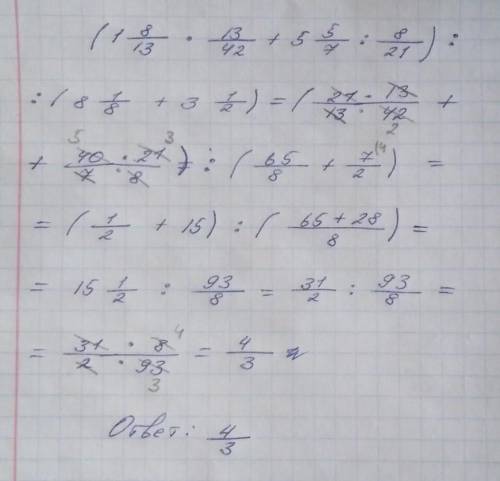 ( 1 8/13 · 13/42 + 5 5/7 : 8/21 ) :
: ( 8 1/8 + 3 1/2 ) = ( 21 · 13 / 13 · 42 2 +
+ 5 40 · 21 3 / 7 · 8 ) = : ( 65/8 + 7/2 (4 ) =
= ( 1/2 + 15 ) : ( 65 + 28 / 8 ) =
= 15 1/2 : 93/8 = 31/2 : 93/8 =
= 31 · 8 4 / 2 · 93 3 = 4/3
Ответ: 4/3